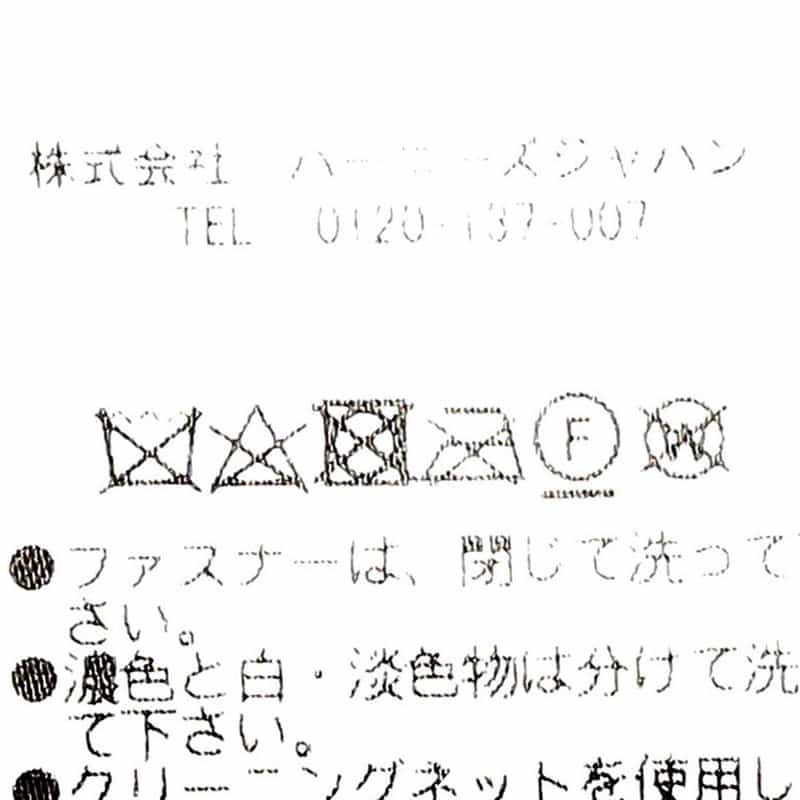 株式会社 バーニーズジャパン
TEL 0120-137-007
F W
●ファスナーは、閉じて洗って
さい。
●濃色と白・淡色物は分けて洗
て下さい。
●クリーニングネットを使用し